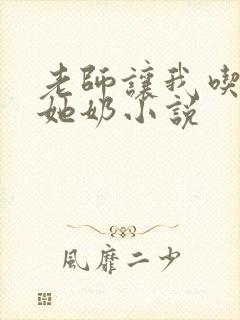 老師讓我喫
她奶小説
風靡二少